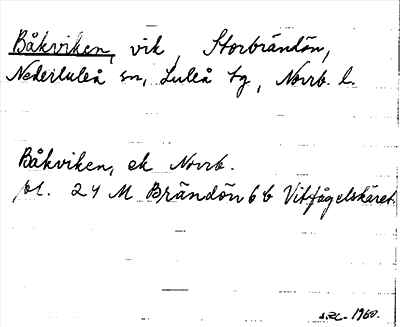 Båkviken, vik, Storbrändön,
Nederluleå sn, Luleå tg, Norrb. l.
Båkviken, ek Norrb.
bl. 24 M Brändön 6 b Vitfågelskäret.
1960.